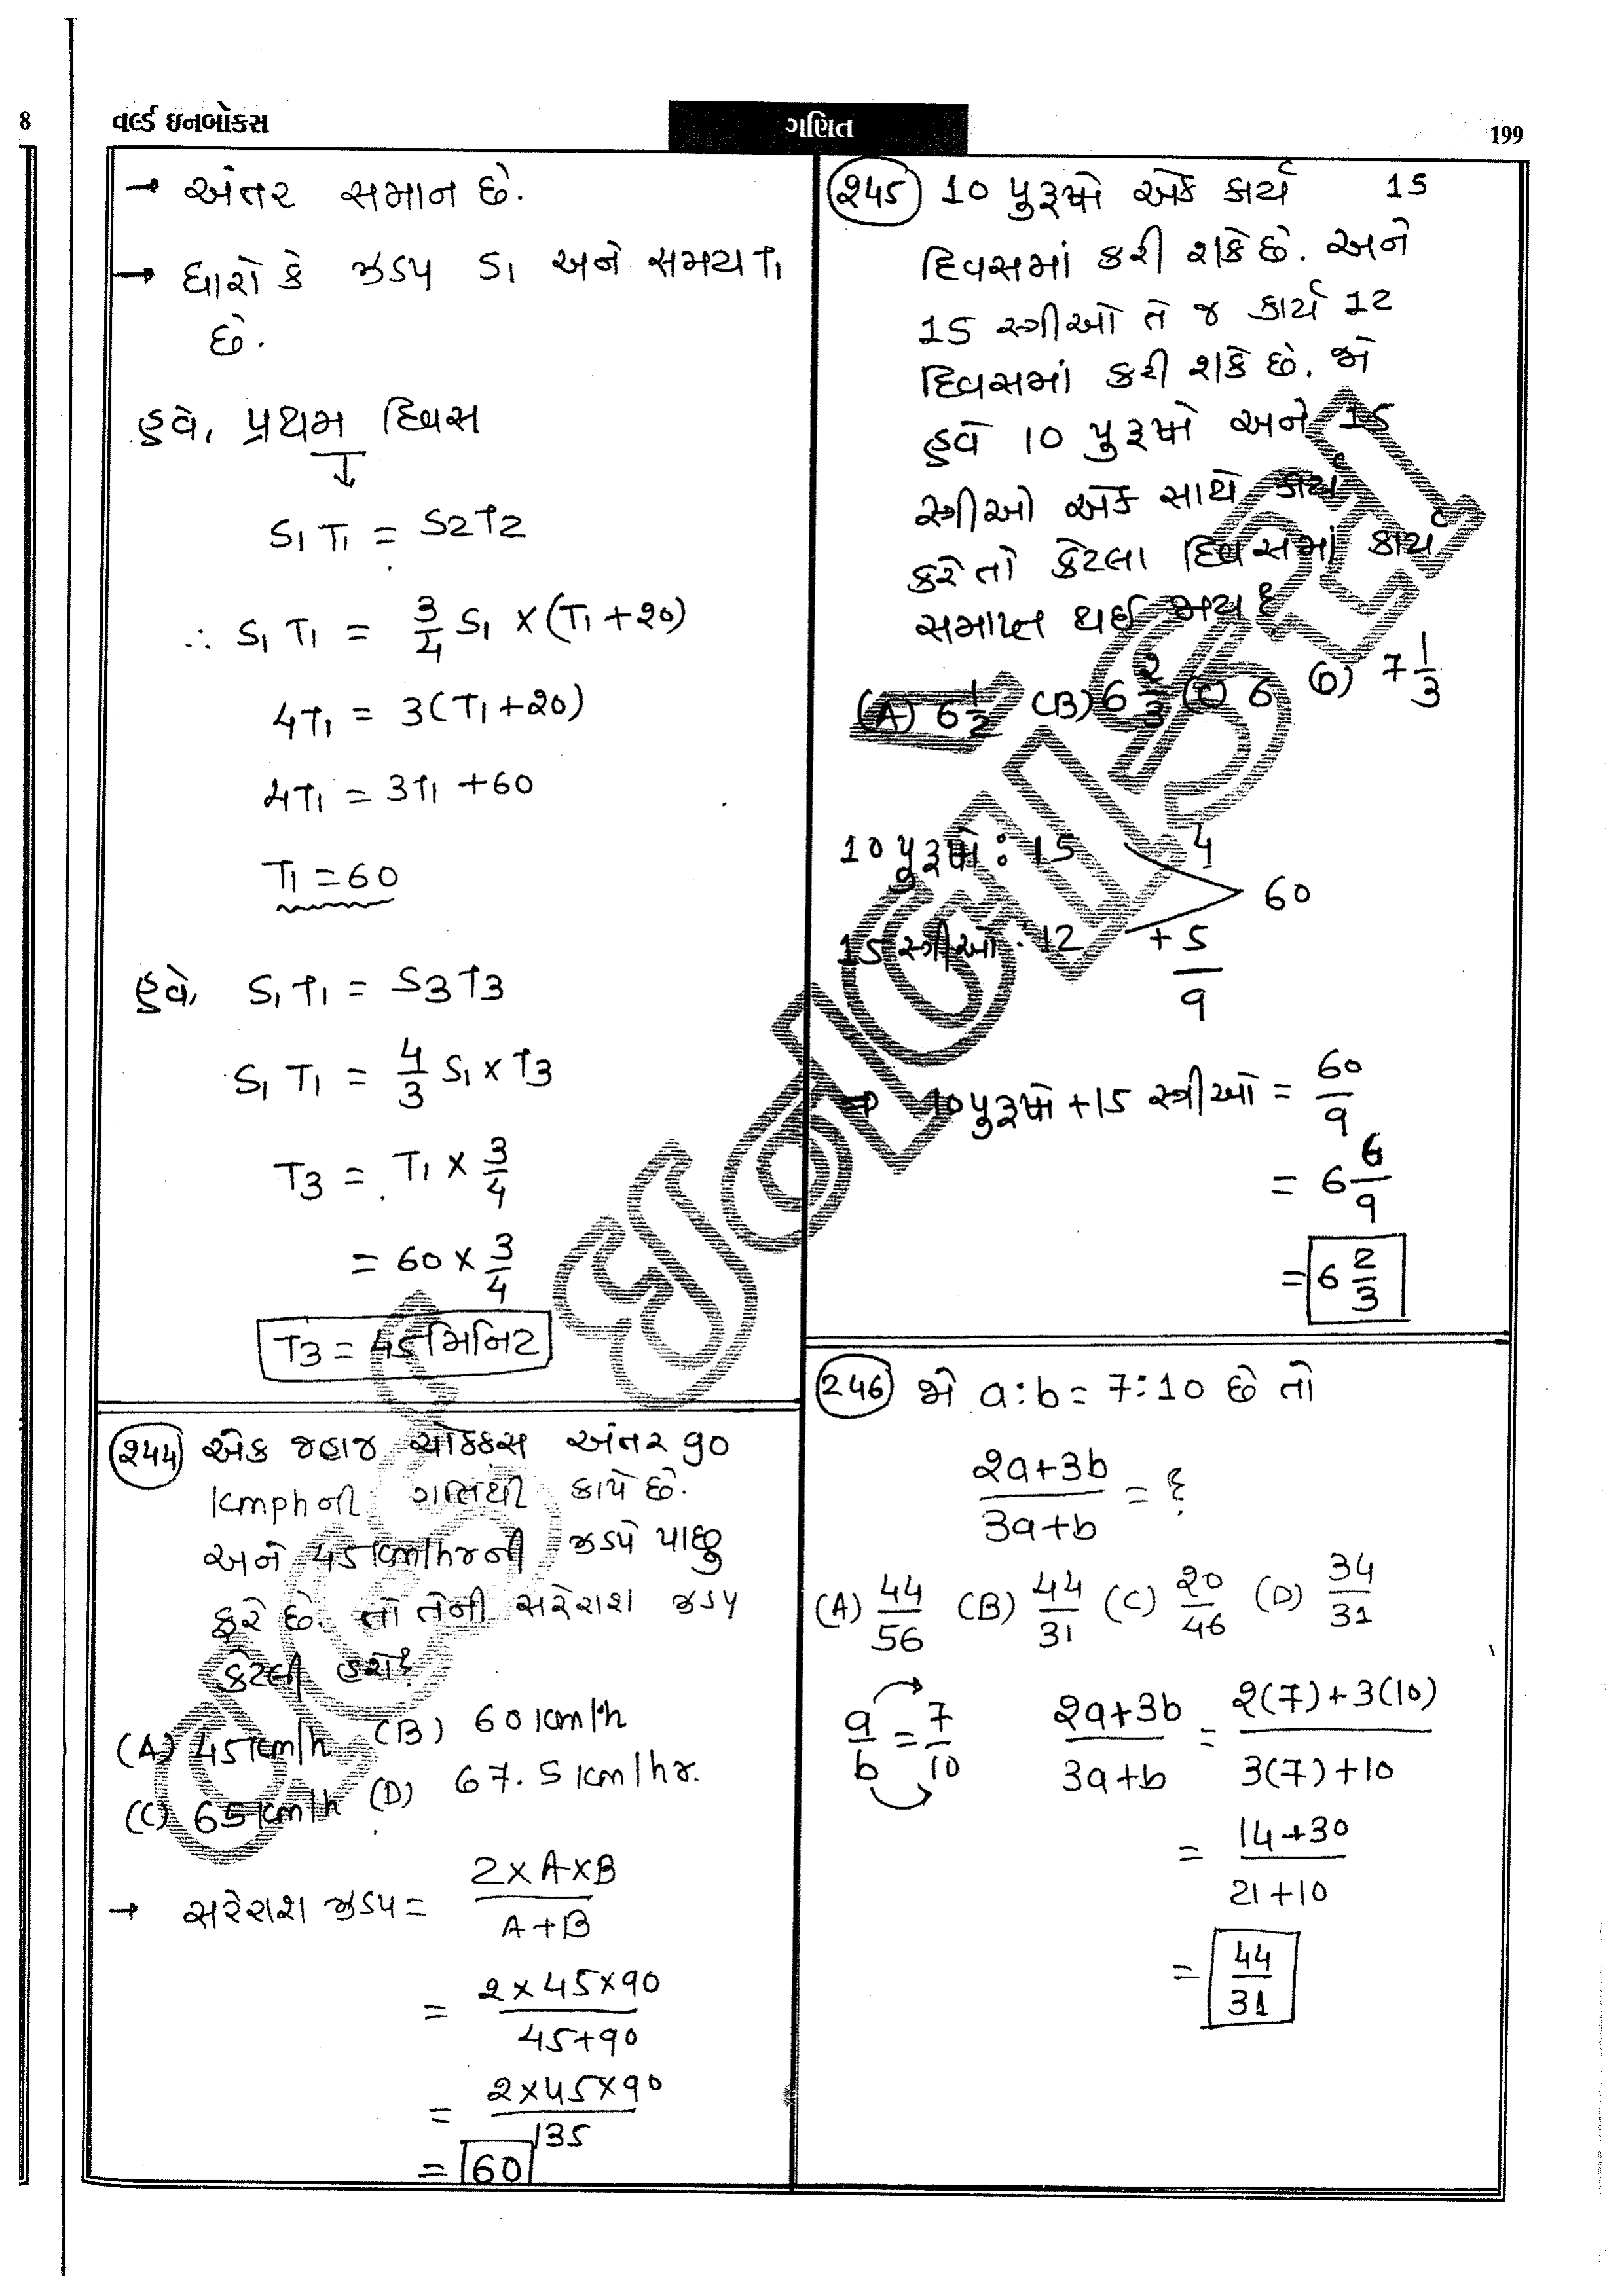 8
વર્લ્ડ ઇનબોક્સ
ગણિત
199
→ અંતર સમાન છે.
→ ધારો કે ઝડપ S1 અને સમય T1
છે.
હવે, પ્રથમ દિવસ
↓
S1 T1 = S2T2
∴ S1 T1 = 3/4 S1 × (T1 + ૨0)
4T1 = 3(T1 + ૨0)
4T1 = 3T1 + 60
T1 = 60
હવે, S1 T1 = S3T3
S1 T1 = 4/3 S1 × T3
T3 = T1 × 3/4
= 60 × 3/4
T3 = 45 મિનિટ
૨44 એક જહાજ ચોક્કસ અંતર 90
kmph ની ગતિથી કાપે છે.
અને 45 km/hr ની ઝડપે પાછુ
ફરે છે. તો તેની સરેરાશ ઝડપ
કેટલી હશે?
(A) 45 km/h (B) 60 km/h
(C) 65 km/h (D) 67.5 km/hr.
→ સરેરાશ ઝડપ = 2×A×B / A+B
= ૨×45×90 / 45+90
= ૨×45×90 / 135
= 60
૨45 10 પુરૂષો એક કાર્ય 15
દિવસમાં કરી શકે છે. અને
15 સ્ત્રીઓ તે જ કાર્ય 12
દિવસમાં કરી શકે છે. જો
હવે 10 પુરૂષો અને 15
સ્ત્રીઓ એક સાથે કાર્ય
કરે તો કેટલા દિવસમાં કાર્ય
સમાપ્ત થઈ જાય?
(A) 6 1/2 (B) 6 ૨/3 (C) 6 (D) 7 1/3
10 પુરૂષો : 15 4
60
15 સ્ત્રીઓ : 12 + 5
9
⇒ 10 પુરૂષો + 15 સ્ત્રીઓ = 60/9
= 6 6/9
= 6 2/3
246 જો a : b = 7 : 10 છે તો
૨a+3b / 3a+b = ?
(A) 44/56 (B) 44/31 (C) ૨0/46 (D) 34/31
a/b = 7/10 ૨a+3b / 3a+b = ૨(7)+3(10) / 3(7)+10
= 14+30 / 21+10
= 44/31